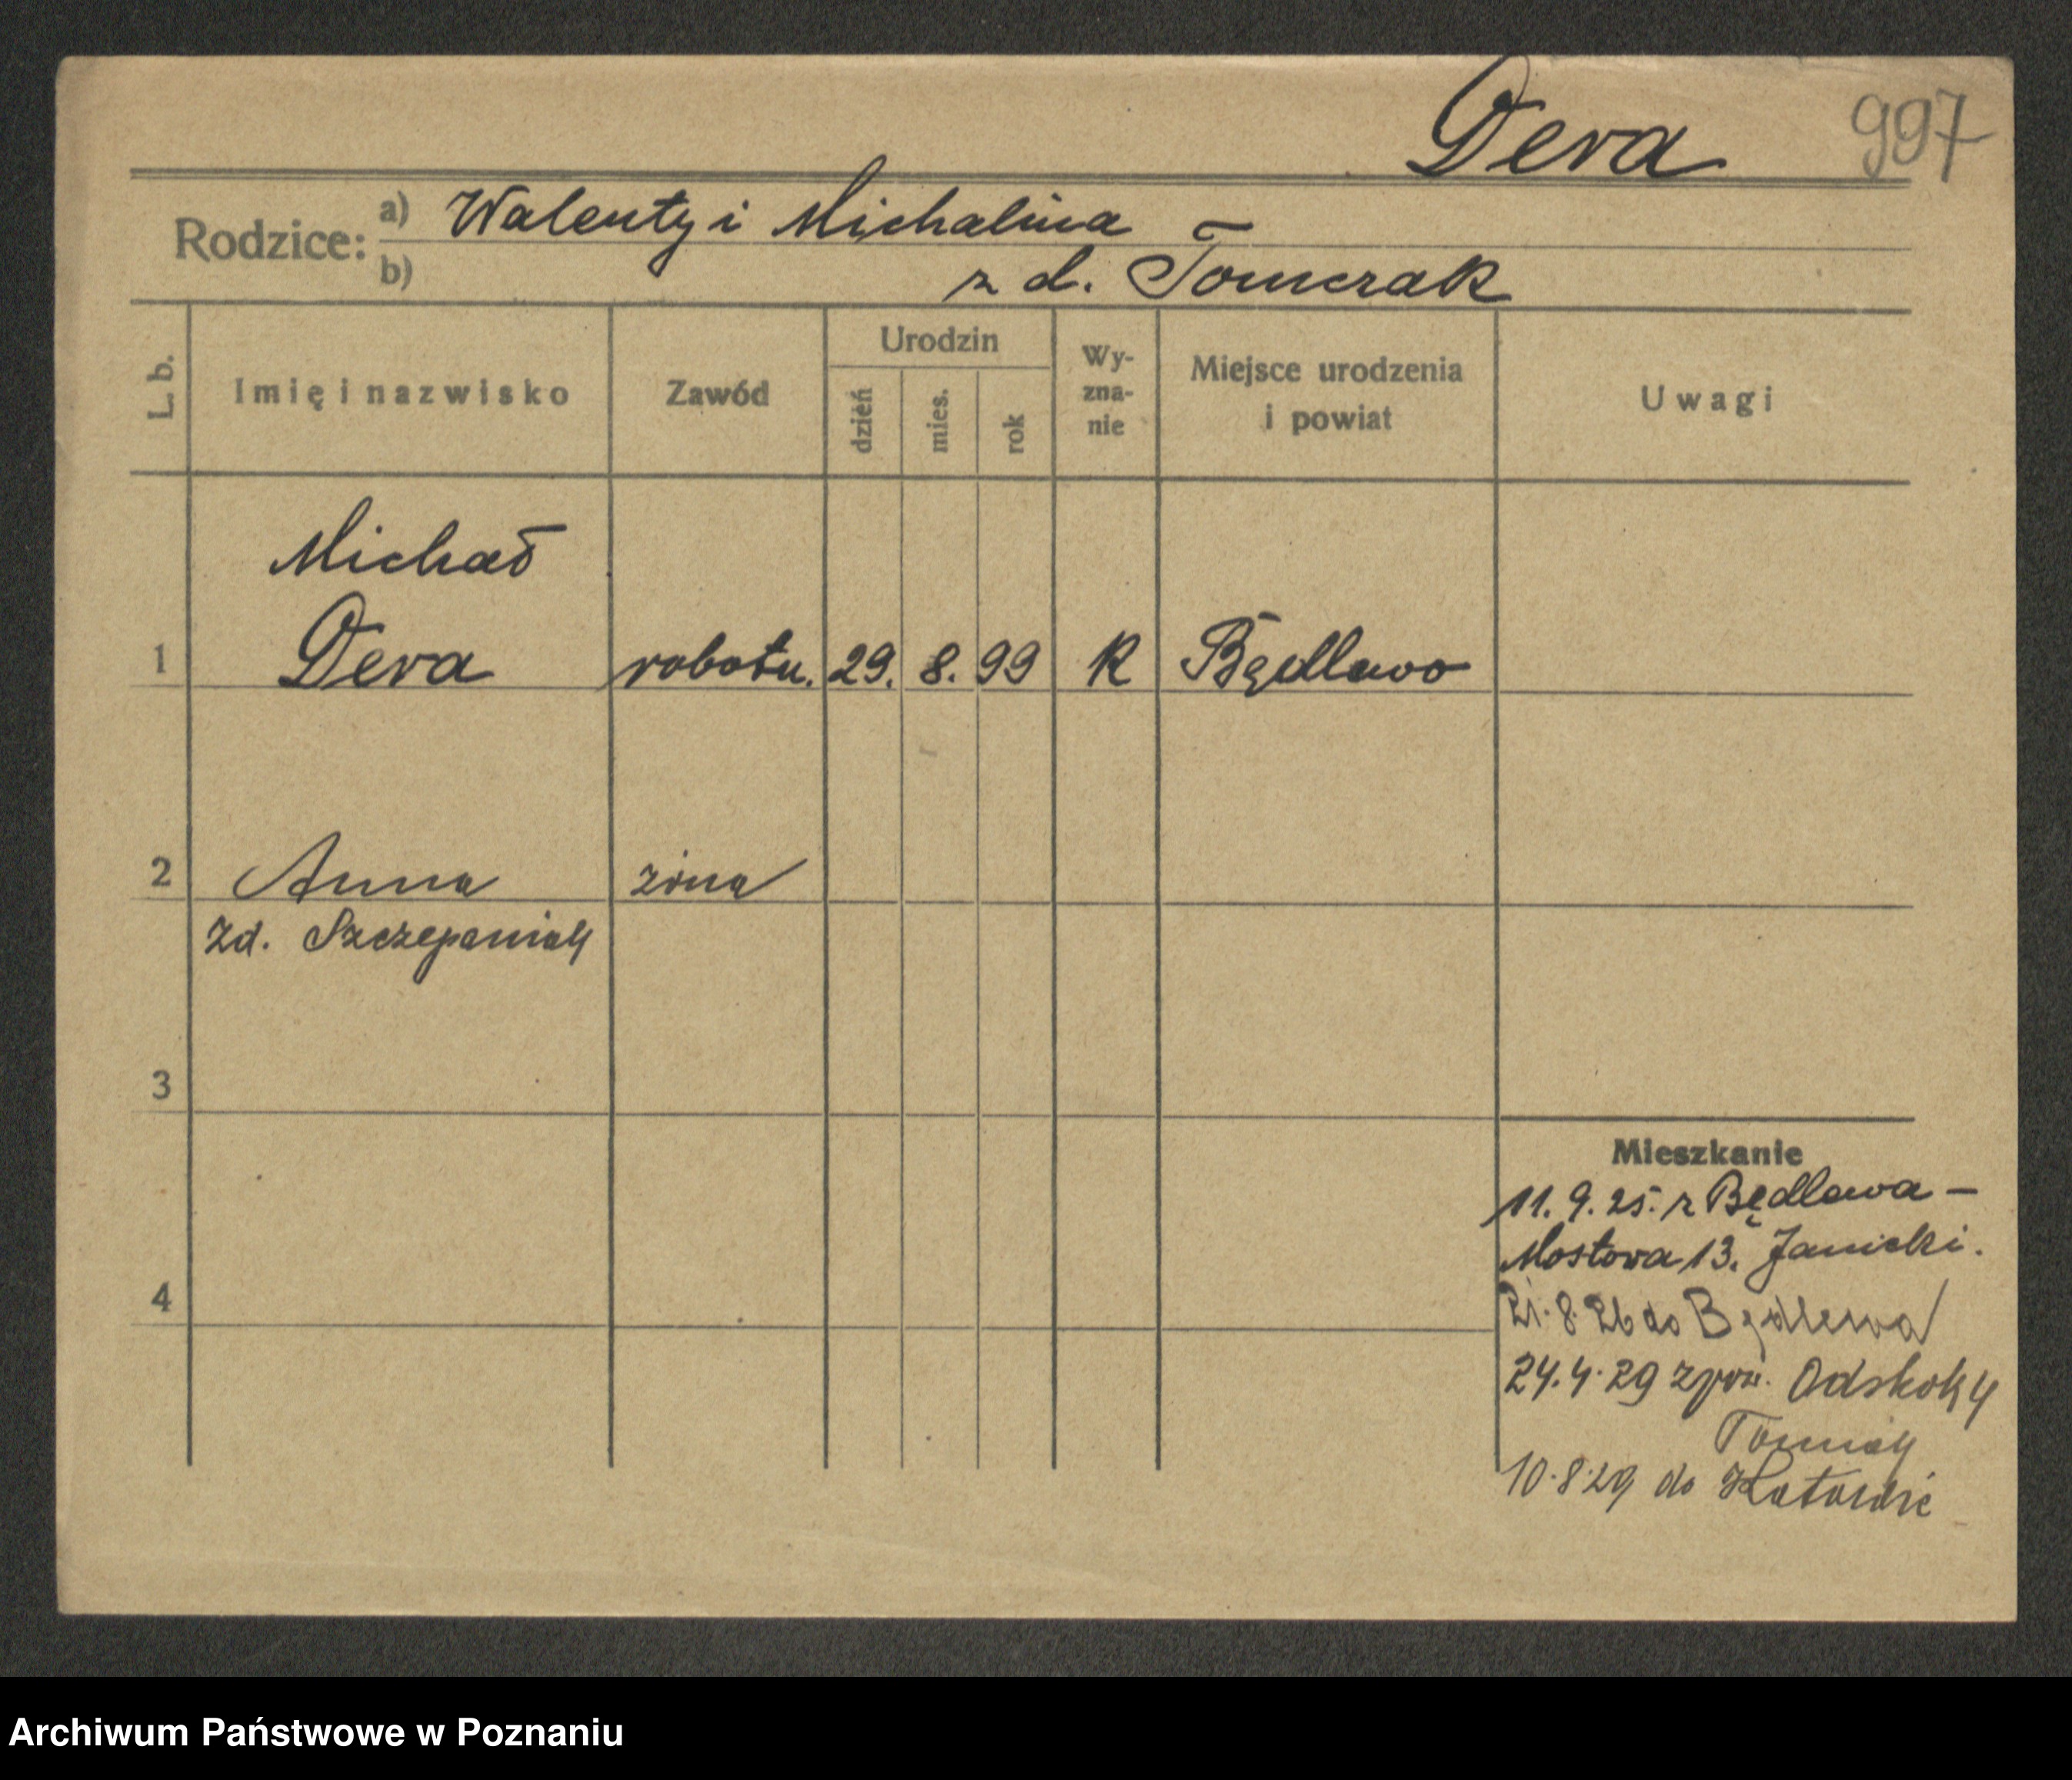 Dera 997
Rodzice: a) Walenty i Michalina
b) z d. Tomczak
L. b.
Imię i nazwisko
Zawód
Urodzin
dzień
mies.
rok
Wy-
zna-
nie
Miejsce urodzenia
i powiat
Uwagi
Michał
1 Dera robotn. 29. 8. 99 K Będlewo
2 Anna żona
zd. Szczepaniak
3
4
Mieszkanie
11. 9. 25. z Będlewa –
Mostowa 13. Janicki.
21. 8. 26 do Będlewa
24. 4. 29 zpow. Odskok 4
10. 8. 29 do Katowic
Archiwum Państwowe w Poznaniu